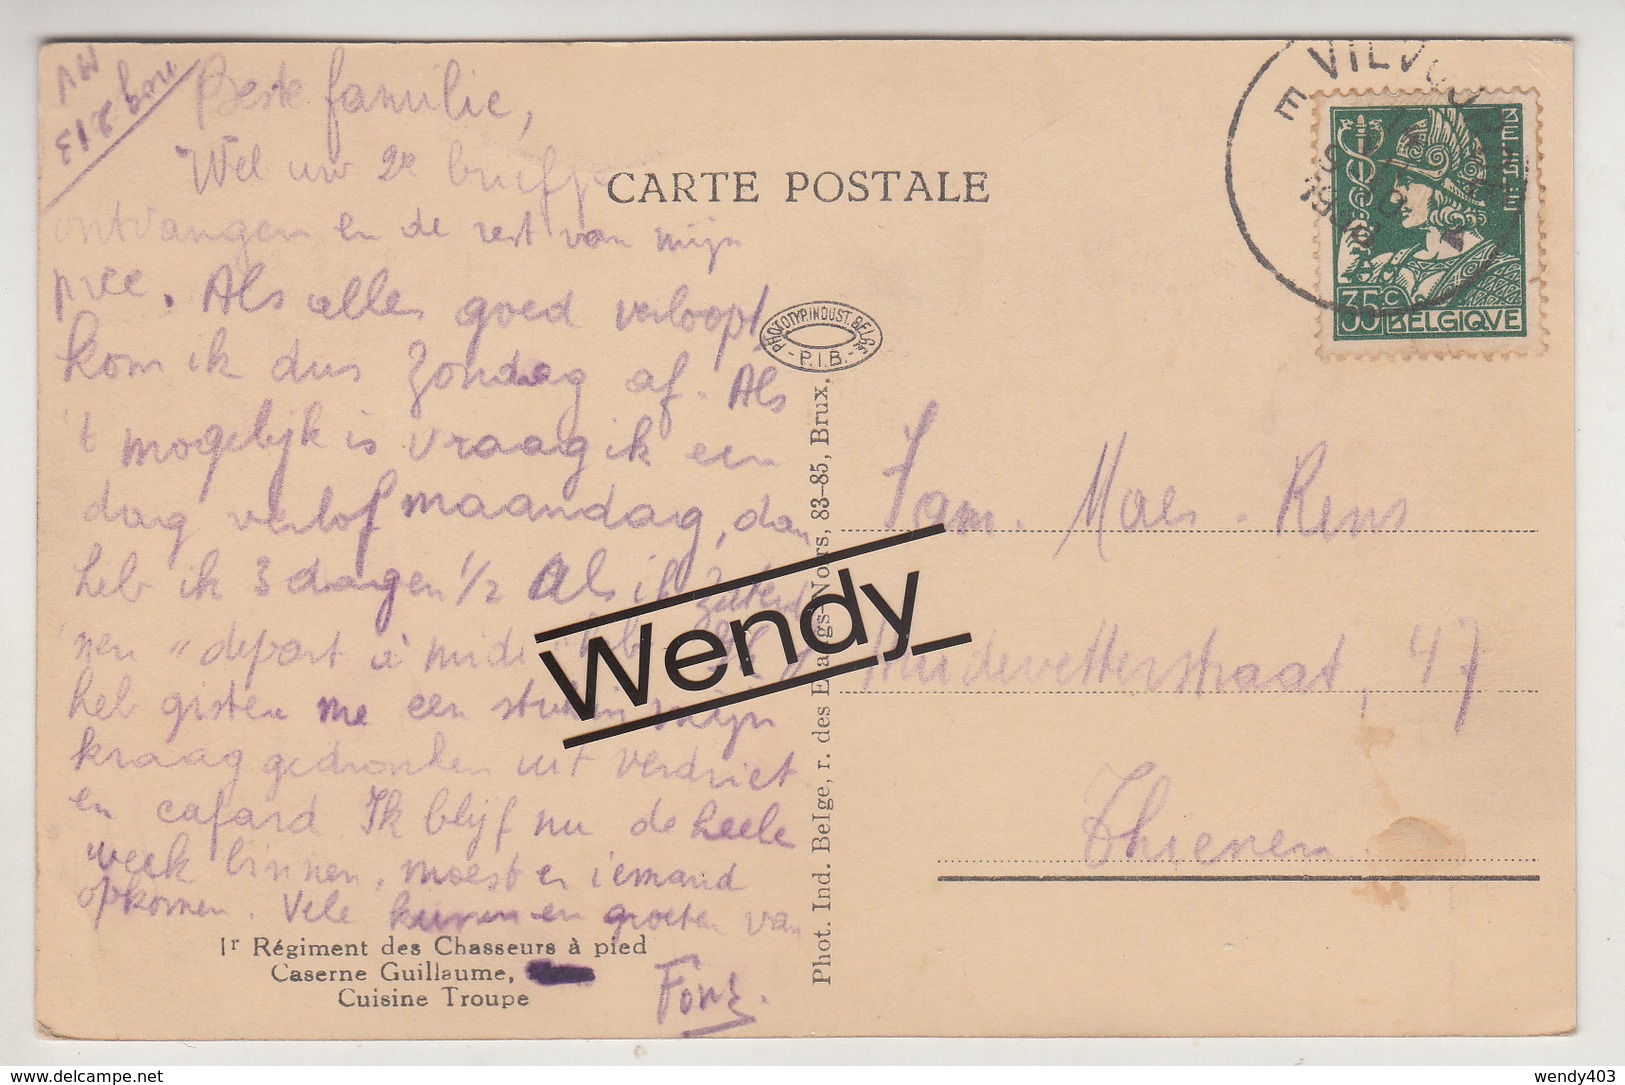 Beste familie,
Wel uw 2e briefje
ontvangen en de rest van mijn
pree. Als alles goed verloopt,
kom ik dus Zondag af. Als
't mogelijk is vraag ik een
dag verlof maandag, dan
heb ik 3 dagen 1/2 Als ik
nen "depart à midi"
heb gisteren me een stuk in mijn
kraag gedronken uit verdriet
en cafard. Ik blijf nu de heele
week binnen, moest er iemand
opkomen. Vele kussen en groeten van
Fons.
1r Régiment des Chasseurs à pied
Caserne Guillaume,
Cuisine Troupe
CARTE POSTALE
PHOTOTYP. INDUST. BELGE
- P.I.B. -
Phot. Ind. Belge, r. des Étangs-Noirs, 83-85, Brux.
BELGIE
35c
BELGIQVE
Fam. Maes - Rens
Huidevetterstraat, 47
Thienen
Wendy
wendy403